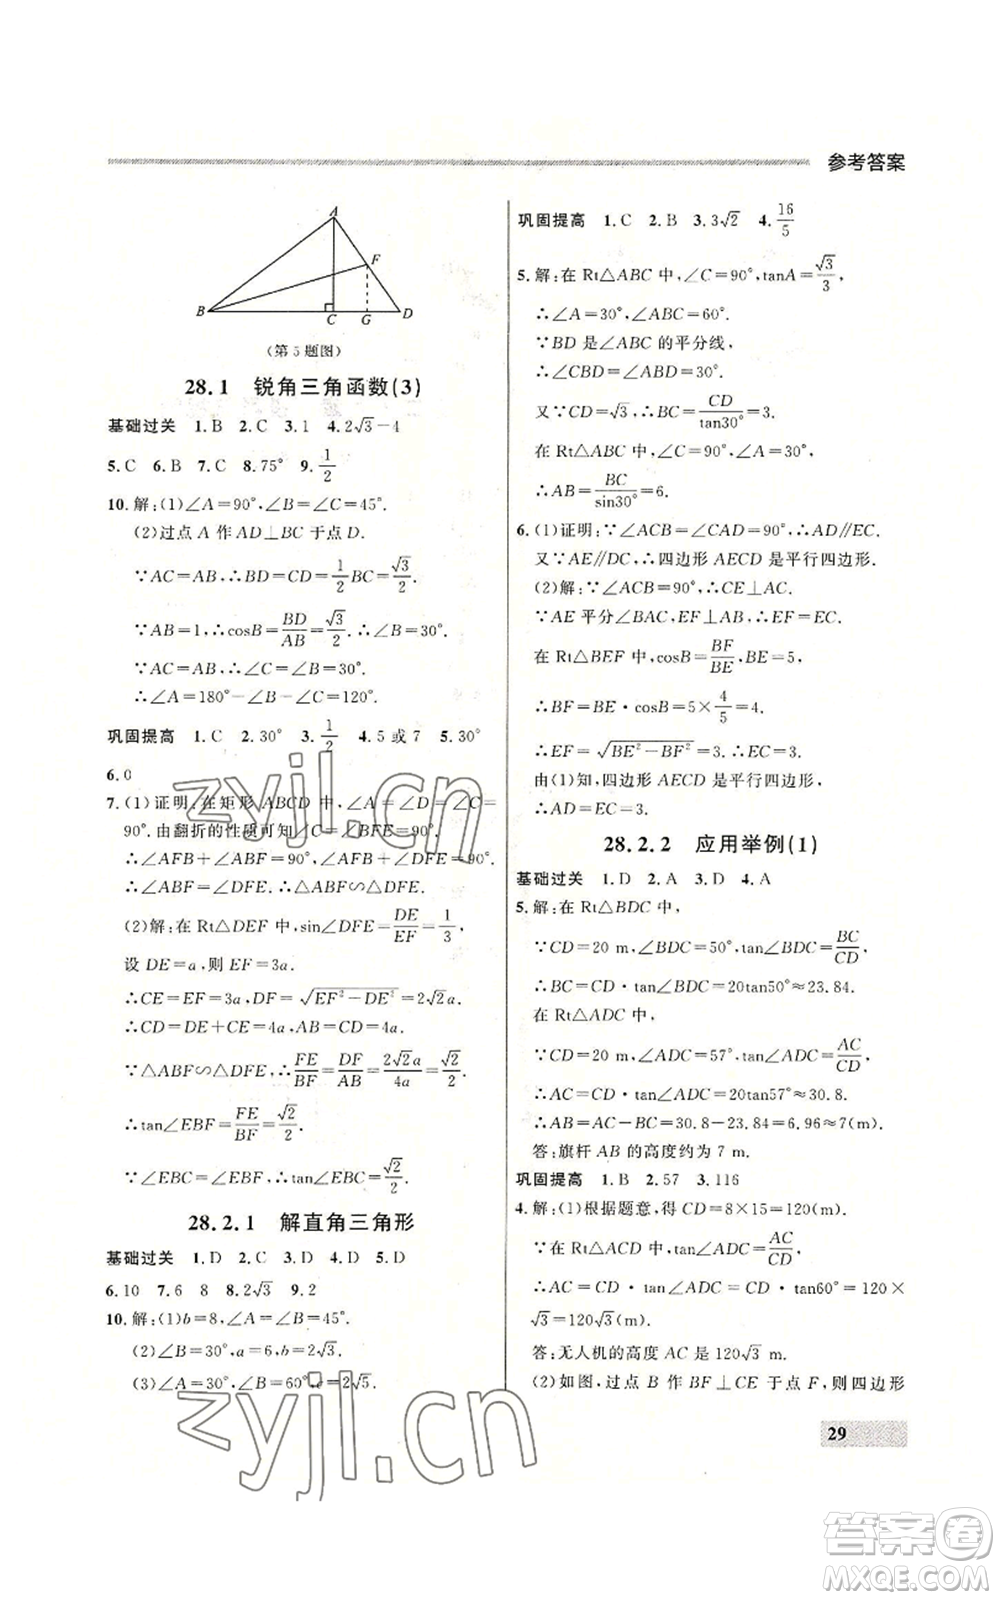 参考答案
A
F
B
C
G
D
(第5题图)
28.1 锐角三角函数(3)
基础过关 1.B 2.C 3.1 4.2√3－4
5.C 6.B 7.C 8.75° 9.1/2
10.解:(1)∠A=90°,∠B=∠C=45°.
(2)过点A作AD⊥BC于点D.
∵AC=AB,∴BD=CD=1/2BC=√3/2.
∵AB=1,∴cosB=BD/AB=√3/2.∴∠B=30°.
∵AC=AB,∴∠C=∠B=30°.
∴∠A=180°－∠B－∠C=120°.
巩固提高 1.C 2.30° 3.1/2 4.5或7 5.30°
6.0
7.(1)证明:在矩形ABCD中,∠A=∠D=∠C=
90°.由翻折的性质可知∠C=∠BFE=90°.
∴∠AFB＋∠ABF=90°,∠AFB＋∠DFE=90°.
∴∠ABF=∠DFE.∴△ABF∽△DFE.
(2)解:在Rt△DEF中,sin∠DFE=DE/EF=1/3,
设DE=a,则EF=3a.
∴CE=EF=3a,DF=√(EF²－DE²)=2√2a.
∴CD=DE＋CE=4a,AB=CD=4a.
∵△ABF∽△DFE,∴FE/BF=DF/AB=2√2a/4a=√2/2.
∴tan∠EBF=FE/BF=√2/2.
∵∠EBC=∠EBF,∴tan∠EBC=√2/2.
28.2.1 解直角三角形
基础过关 1.D 2.C 3.D 4.D 5.D
6.10 7.6 8 8.2√3 9.2
10.解:(1)b=8,∠A=∠B=45°.
(2)∠B=30°,a=6,b=2√3.
(3)∠A=30°,∠B=60°,c=2√5.
巩固提高 1.C 2.B 3.3√2 4.16/5
5.解:在Rt△ABC中,∠C=90°,tanA=√3/3,
∴∠A=30°,∠ABC=60°.
∵BD是∠ABC的平分线,
∴∠CBD=∠ABD=30°.
又∵CD=√3,∴BC=CD/tan30°=3.
在Rt△ABC中,∠C=90°,∠A=30°,
∴AB=BC/sin30°=6.
6.(1)证明:∵∠ACB=∠CAD=90°,∴AD∥EC.
又∵AE∥DC,∴四边形AECD是平行四边形.
(2)解:∵∠ACB=90°,∴CE⊥AC.
∵AE平分∠BAC,EF⊥AB,∴EF=EC.
在Rt△BEF中,cosB=BF/BE,BE=5,
∴BF=BE·cosB=5×4/5=4.
∴EF=√(BE²－BF²)=3.∴EC=EF=3.
由(1)知,四边形AECD是平行四边形,
∴AD=EC=3.
28.2.2 应用举例(1)
基础过关 1.D 2.A 3.D 4.A
5.解:在Rt△BDC中,
∵CD=20 m,∠BDC=50°,tan∠BDC=BC/CD,
∴BC=CD·tan∠BDC=20tan50°≈23.84.
在Rt△ADC中,
∵CD=20 m,∠ADC=57°,tan∠ADC=AC/CD,
∴AC=CD·tan∠ADC=20tan57°≈30.8.
∴AB=AC－BC=30.8－23.84=6.96≈7(m).
答:旗杆AB的高度约为7 m.
巩固提高 1.B 2.57 3.116
4.解:(1)根据题意,得CD=8×15=120(m).
∵在Rt△ACD中,tan∠ADC=AC/CD,
∴AC=CD·tan∠ADC=CD·tan60°=120×
√3=120√3(m).
答:无人机的高度AC是120√3 m.
(2)如图,过点B作BF⊥CE于点F,则四边形
29
zyjl.cn
zyjl.cn
答案卷
MXQE.COM